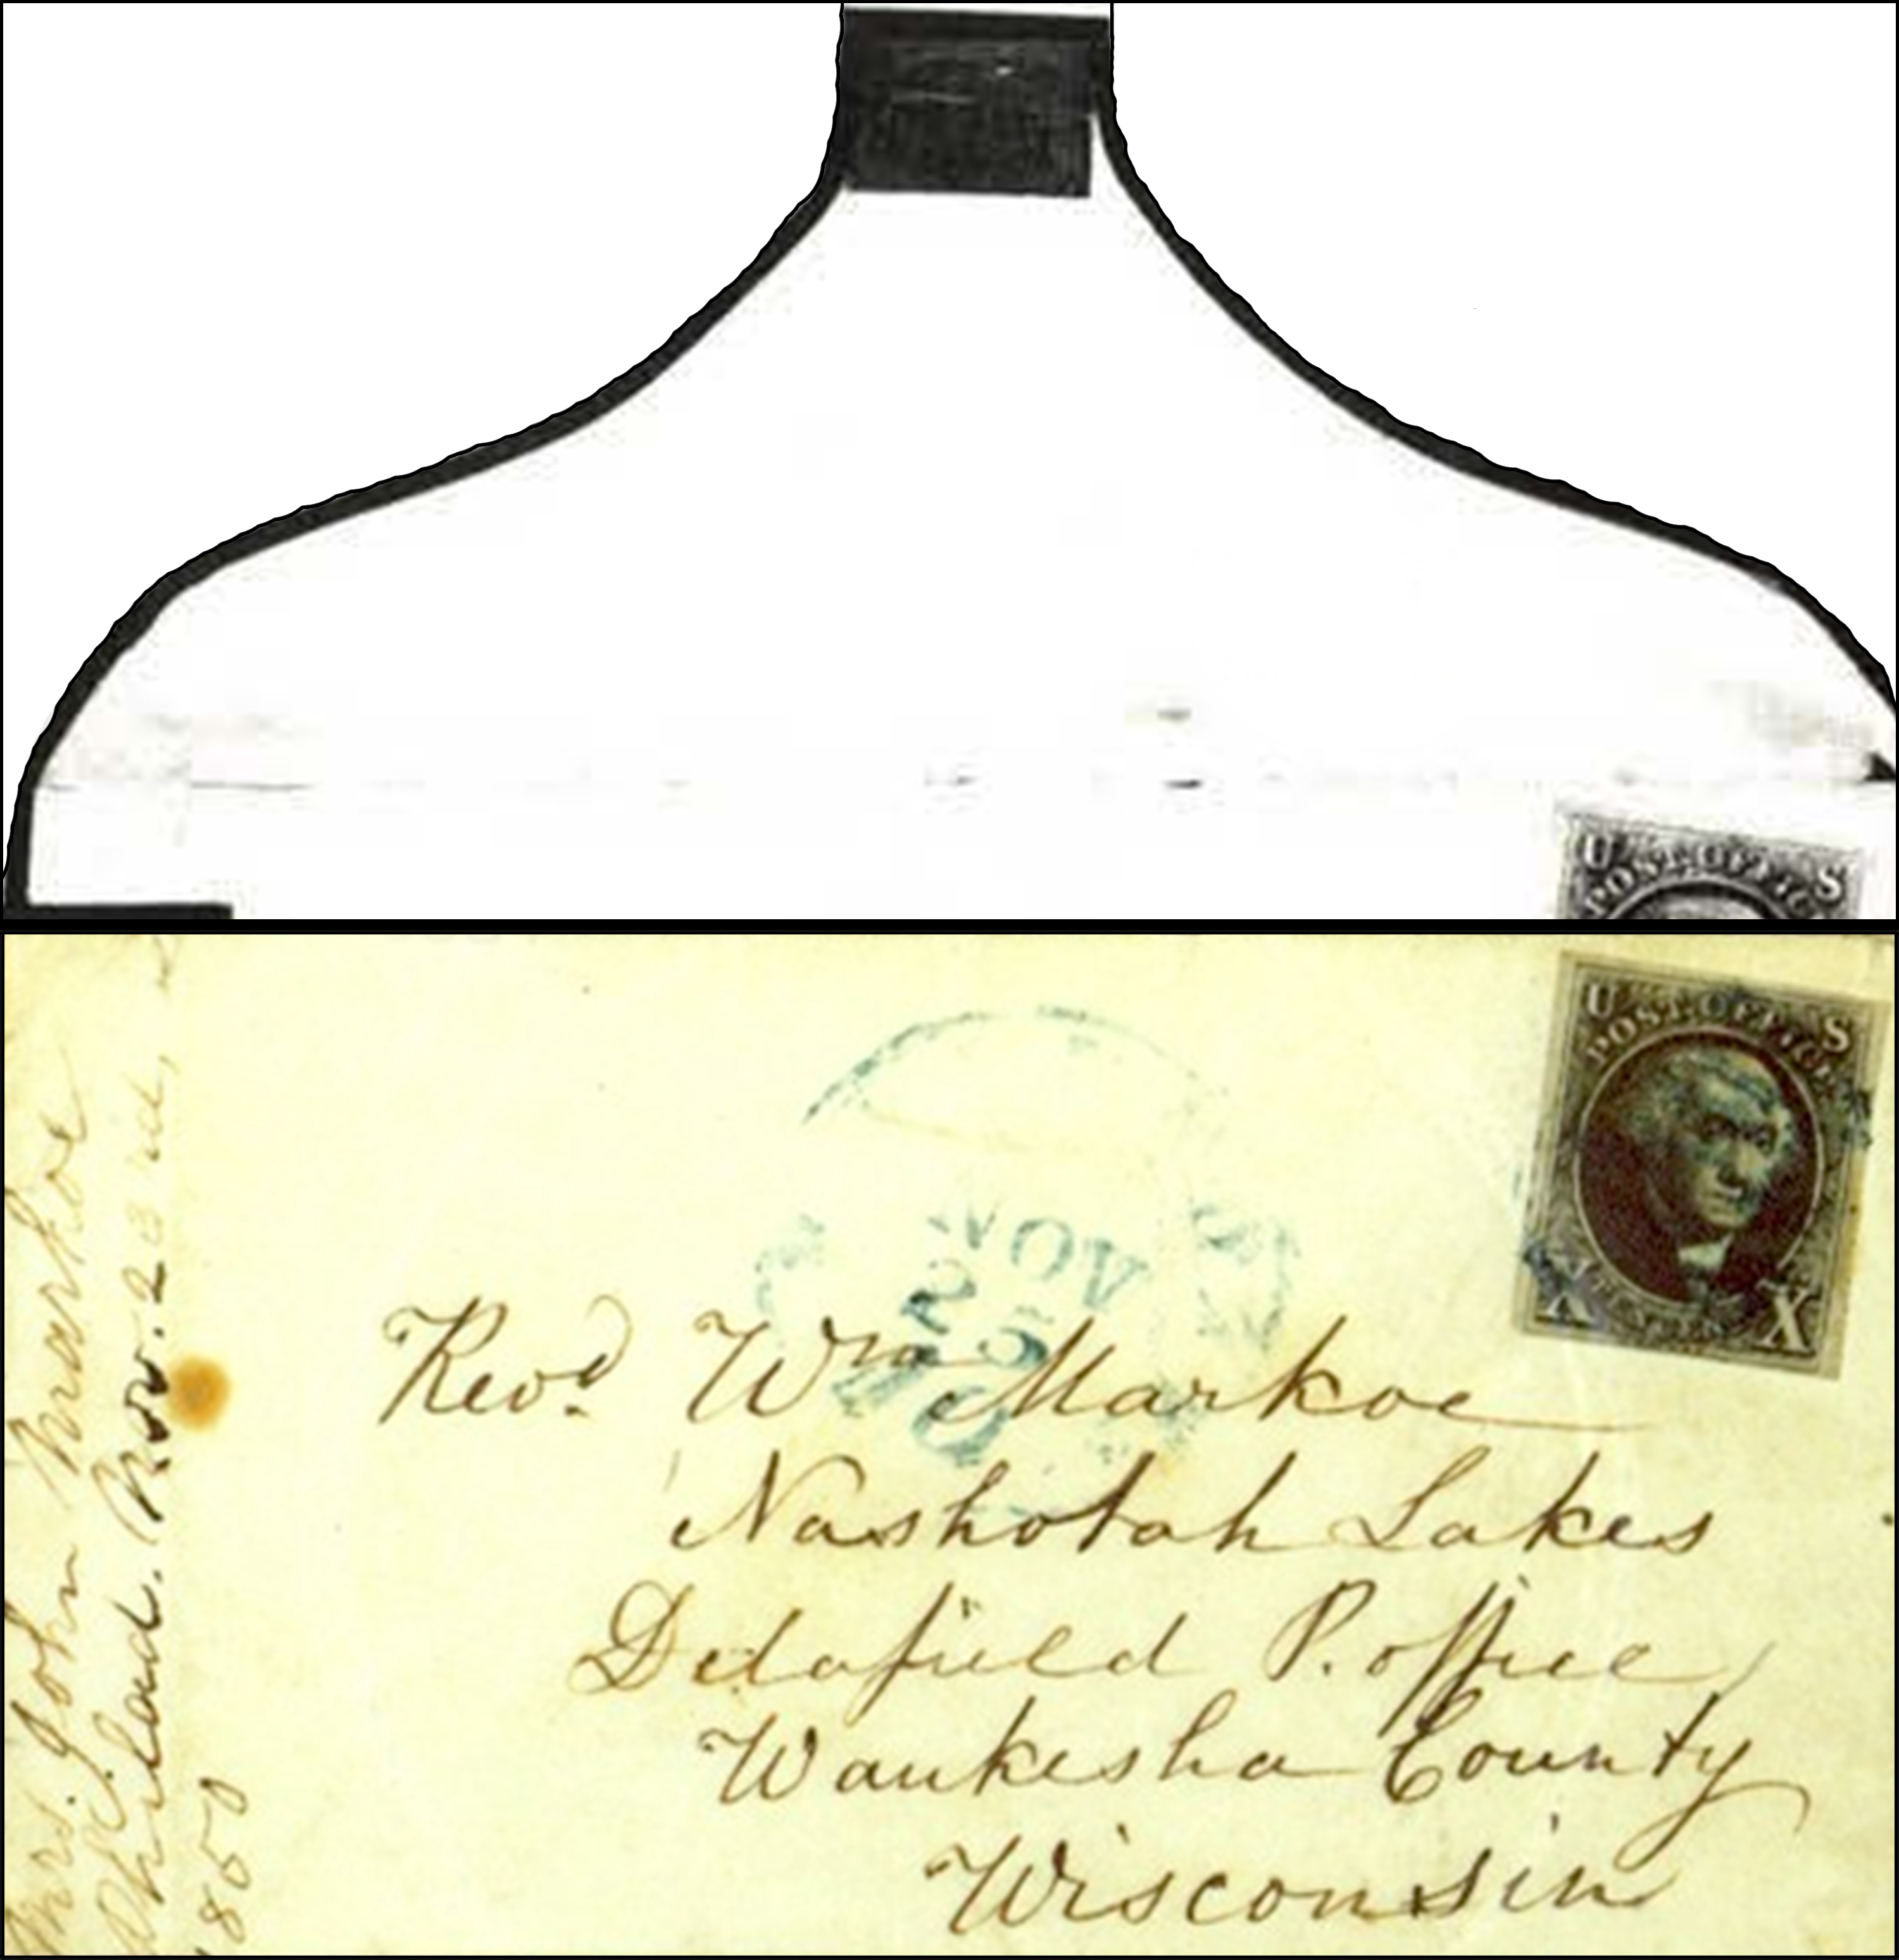 U S
POST OFFICE
U S
POST OFFICE
X X
NOV
25
10
Revd. Wm Markoe
Nashotah Lakes
Delafield P. office
Waukesha County
Wisconsin
Mrs. John Markoe
Philad. Nov. 23rd,
1850